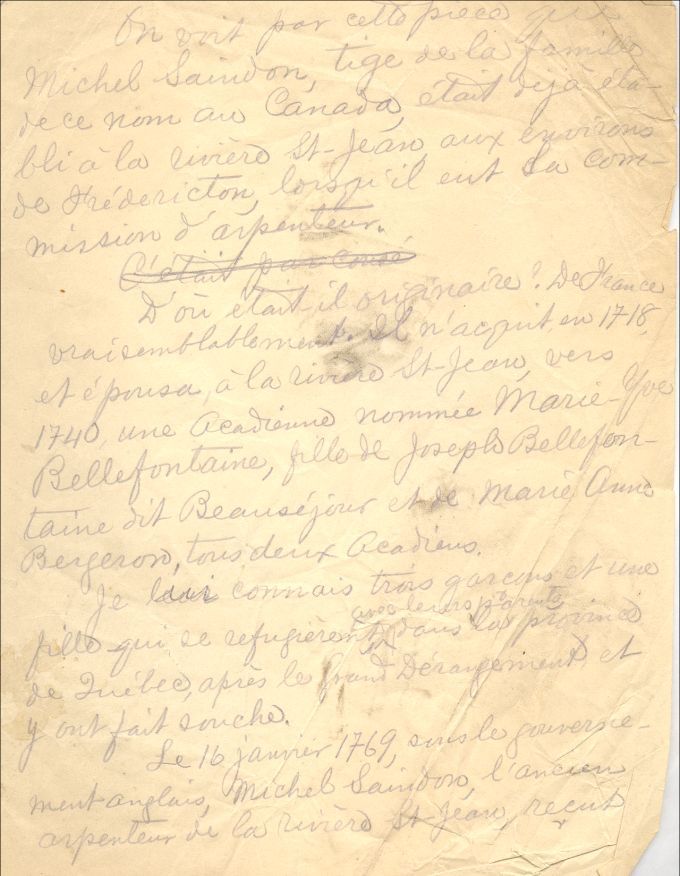 On voit par cette pièce que
Michel Saindon, tige de la famille
de ce nom au Canada, était déjà éta-
bli à la rivière St-Jean aux environs
de Frédericton, lorsqu'il eut sa com-
mission d'arpenteur.
C'était par consé
D'où était-il originaire? De France
vraisemblablement. Il n'acquit en 1718,
et épousa, à la rivière St-Jean, vers
1740, une Acadienne nommée Marie-Yve
Bellefontaine, fille de Joseph Bellefon-
taine dit Beauséjour et de Marie Anne
Bergeron, tous deux Acadiens.
Je lui connais trois garçons et une
avec leurs parents
fille qui se refugièrent dans la province
de Québec, après le Grand Dérangement et
y ont fait souche.
Le 16 janvier 1769, sous le gouverne-
ment anglais, Michel Saindon, l'ancien
arpenteur de la rivière St-Jean, reçut